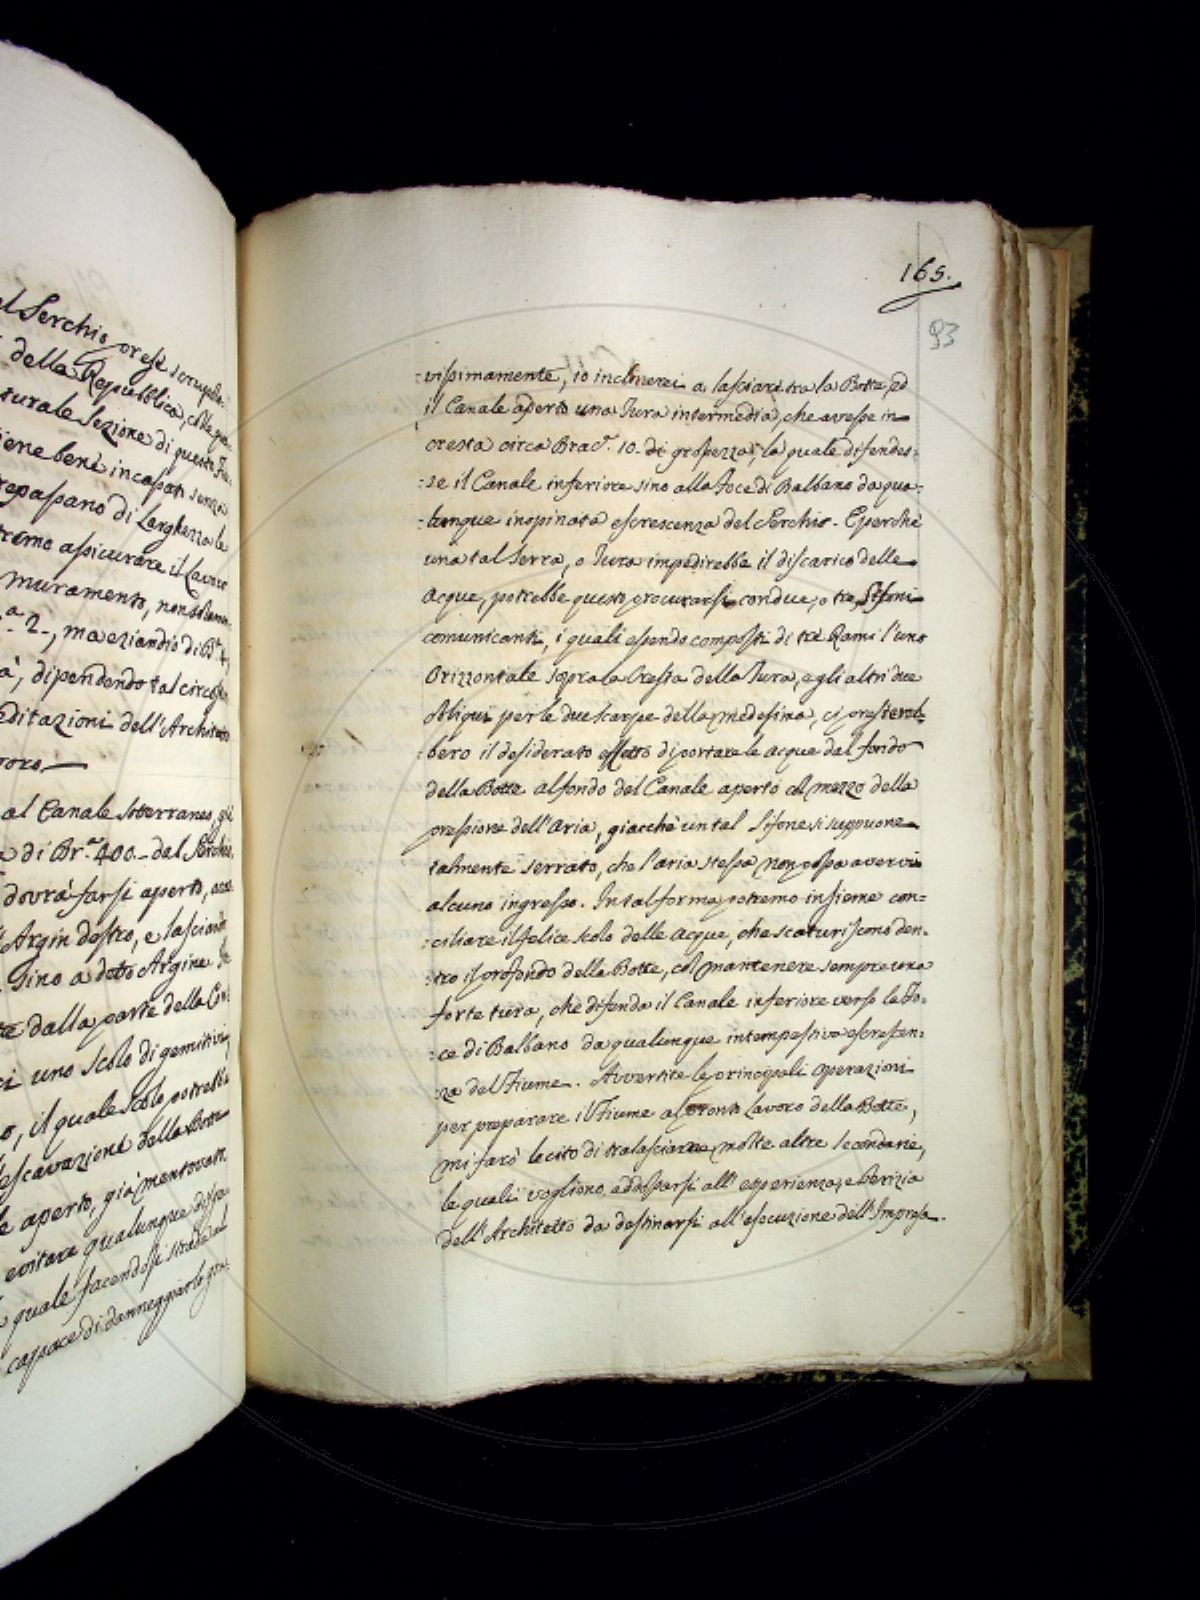 el Serchio prese scrupolo-
della Repubblica, colle qua-
turale Sezione di questo Fiu-
iene bene incassati senza
repassano di Larghezza le
tremo assicurare il Lavoro
muramento, non solamen-
a 2-, ma eziandio di
à, dipendendo tal circost-
editazioni dell'Architetto
voro.—
al Canale sotterraneo, già
a di Br.ª 400.- dal Serchio,
dovrà farsi aperto,
l'Argin destro, e lasciando
sino a detto Argine
te dalla parte della
ci uno scolo di gemitivi,
o, il quale scolo potrebbe
escavazione della Botte
le aperto, già mentovati.
evitare qualunque
quale facendosi strada
capace di danneggiarlo
165.
93
:vissimamente, io inclinerei a lasciare tra la Botte, ed
il Canale aperto una Tura intermedia, che avesse in
cresta circa Brac.ª 10. di grossezza, la quale difendes:
:se il Canale inferiore sino alla Foce di Balbano da qua:
:lunque inopinata escrescenza del Serchio. E perchè
una tal Serra, o Tura impedirebbe il discarico delle
Acque, potrebbe questo procurarsi con due, o tre Sifoni
comunicanti, i quali essendo composti di trè Rami l'uno
Orizzontale sopra la Cresta della Tura, e gli altri due
obliqui per le due scarpe della medesima, ci presterеb:
:bero il desiderato effetto di portare le acque dal fondo
della Botte al fondo del Canale aperto col mezzo della
pressione dell'Aria, giacchè un tal Sifone si suppone
talmente serrato, che l'aria stessa non possa avervi
alcuno ingresso. In tal forma potremo insieme con:
:ciliare il felice scolo delle Acque, che scaturiscono den:
:tro il profondo della Botte, col mantenere sempre una
forte tura, che difenda il Canale inferiore verso la Fo:
:ce di Balbano da qualunque intempestiva escrescen:
:za del Fiume. Avvertite le principali operazioni
per preparare il Fiume al pronto Lavoro della Botte,
mi farò lecito di tralasciarne molte altre secondarie,
le quali vogliono addossarsi all'esperienza, e Perizia
dell'Architetto da destinarsi all'esecuzione dell'Impresa.